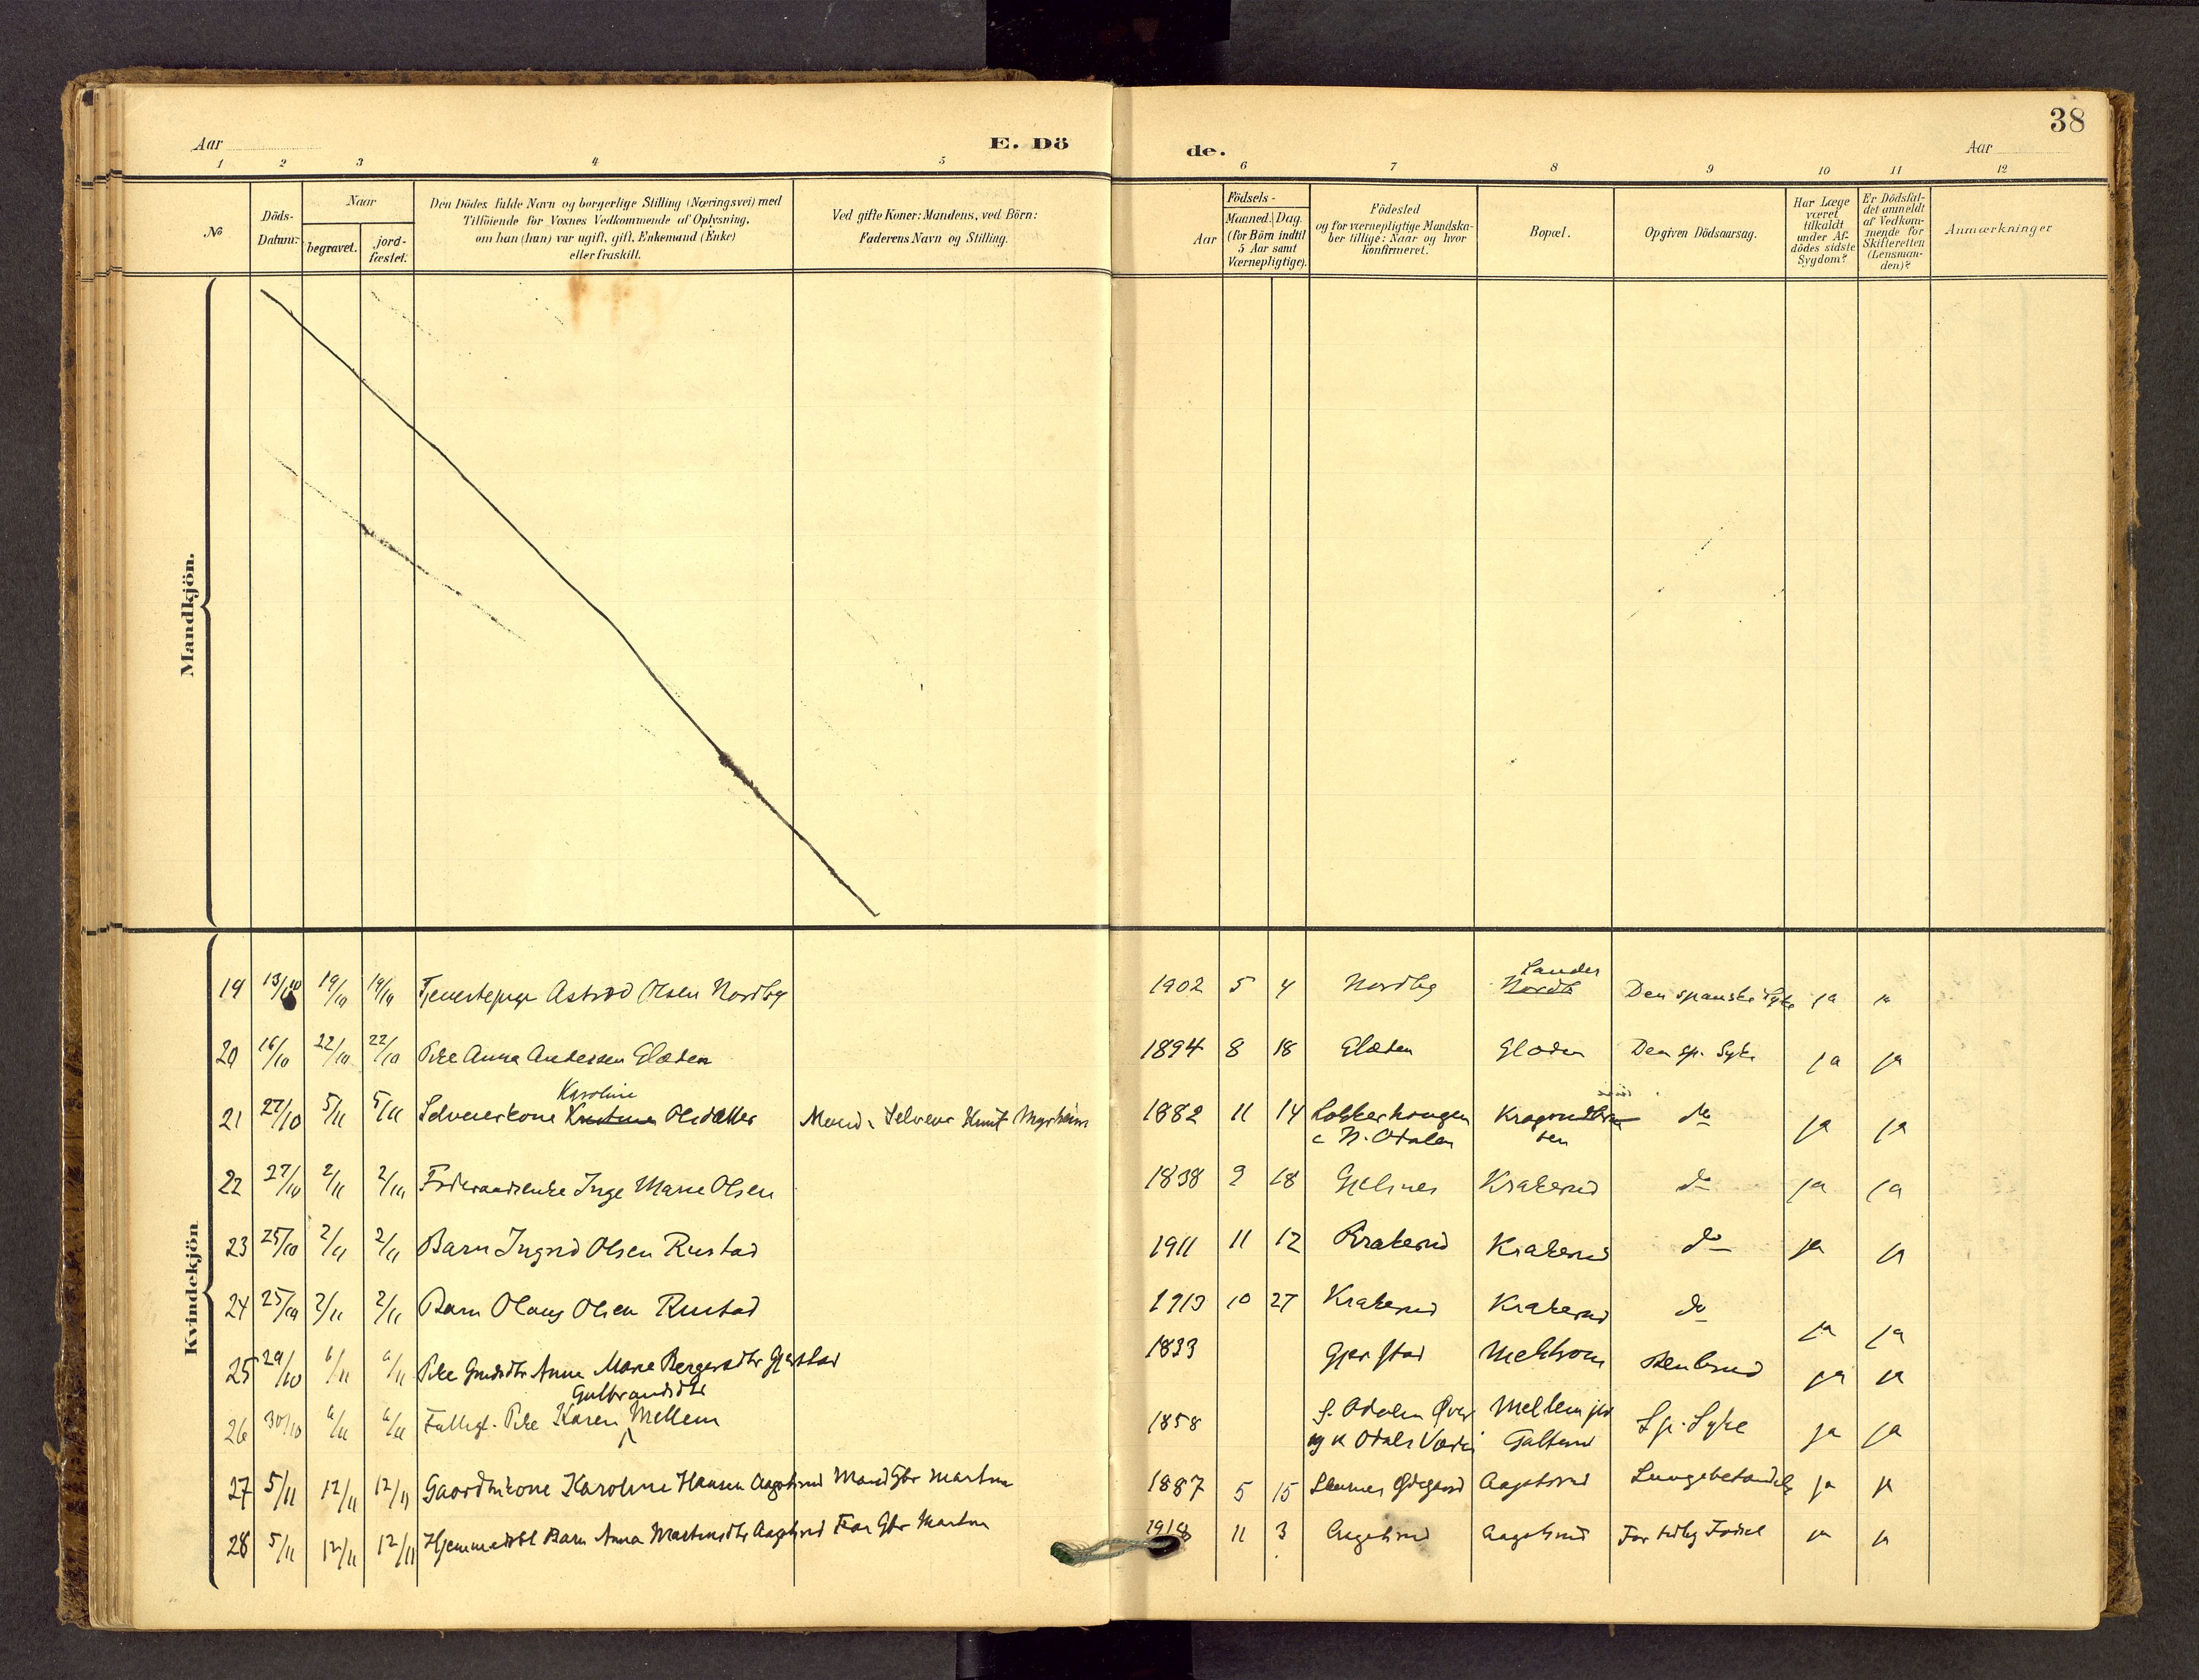 38
Aar
E. Dö
de.
Aar
1 2 3 4 5 6 7 8 9 10 11 12
No
Döds-Datum:
Naar
begravet.
jord-fæstet.
Den Dödes fulde Navn og borgerlige Stilling (Næringsvei) med
Tilföiende for Voxnes Vedkommende af Oplysning,
om han (hun) var ugift, gift, Enkemand (Enke)
eller fraskilt.
Ved gifte Koner: Mandens, ved Börn:
Faderens Navn og Stilling.
Aar
Födsels-
Maaned. Dag.
(for Börn indtil
5 Aar samt
Værnepligtige).
Födested
og for værnepligtige Mandska-
ber tillige: Naar og hvor
konfirmeret.
Bopæl.
Opgiven Dödsaarsag.
Har Læge
været
tilkaldt
under Af-
dödes sidste
Sygdom?
Er Dödsfal-
det anmeldt
af Vedkom-
mende for
Skifteretten
(Lensman-
den)?
Anmærkninger
Mandkjön.
Kvindekjön
Sander
19 13/10 19/10 19/10 Astrid Olsen Nordby 1902 5 4 Nordby Den spanske Syke ja ja
20 16/10 22/10 22/10 Pike Anna Andersen Glæden 1894 8 18 Glæden Glæden Den sp. Syke ja ja
Karoline
21 27/10 5/11 5/11 Selveierkone Olsdatter Mand: Selveier Knut Myrheim 1882 11 14 do ja ja
i N. Odalen
22 27/10 2/11 2/11 Inge Marie Olsen 1838 9 18 Krakerud do ja ja
23 25/10 2/11 2/11 Barn Ingrid Olsen Rustad 1911 11 12 Krakerud Krakerud do ja ja
24 25/10 2/11 2/11 Barn Olaug Olsen Rustad 1913 10 27 Krakerud Krakerud do ja ja
25 29/10 6/11 6/11 Pike Anne Marie Gjerstad 1833 Gjerstad Benbrud ja ja
Gulbrandsdtr
26 30/10 6/11 6/11 Fattigl. Pike Karen Mellem 1858 S. Odalen Mellem Sp. Syke ja ja
27 5/11 12/11 12/11 Gaardbrkone Karoline Hansen Aagotsrud Mand Gbr Martin 1887 5 15 Aagotsrud Lungebetændelse ja ja
28 5/11 12/11 12/11 Hjemmedøbt Barn Anna Martinsdtr Aagotsrud Far Gbr Martin 1918 11 3 Aagotsrud Aagotsrud For tidlig Fødsel ja ja